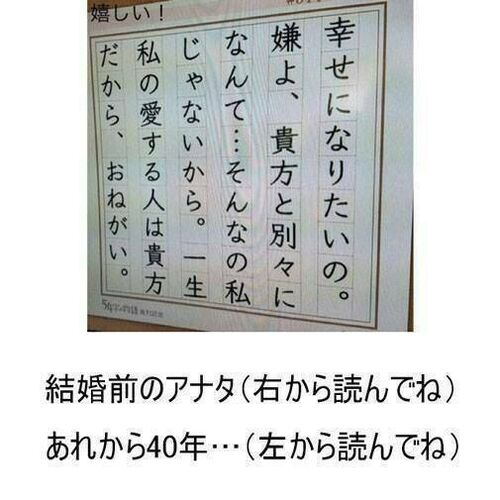 嬉しい！
幸せになりたいの。
嫌よ、貴方と別々に
なんて…そんなの私
じゃないから。一生
私の愛する人は貴方
だから、おねがい。
54字の物語
結婚前のアナタ（右から読んでね）
あれから40年…（左から読んでね）